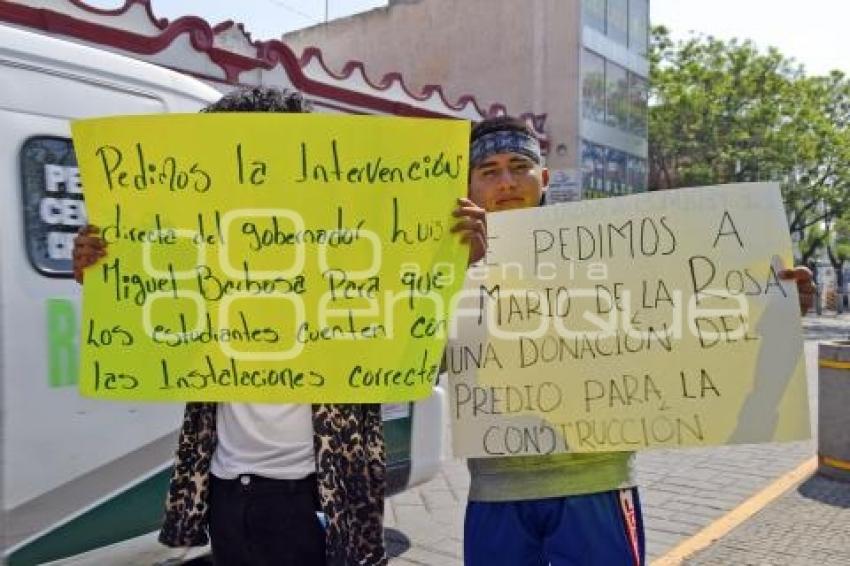 Pedimos la Intervención
directa del gobernador Luis
Miguel Barbosa Para que
Los estudiantes cuenten con
las Instalaciones correcta
E PEDIMOS A
MARIO DE LA ROSA
UNA DONACIÓN DEL
PREDIO PARA LA
CONSTRUCCIÓN
agencia
enfoque